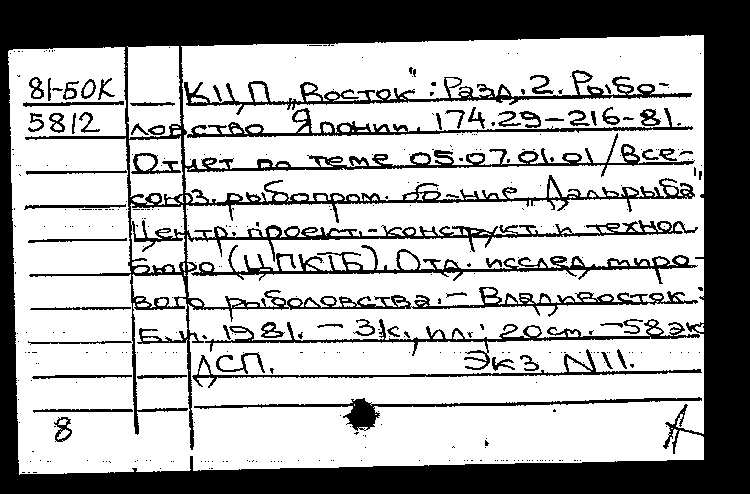 81-БОК КЦП „Восток": Разд. 2. Рыбо-
5812 ловство Японии. 174.29-216-81.
Отчет по теме 05.07.01.01/Все-
союз. рыбопром. об-ние „Дальрыба".
Центр. проект.-конструкт. и технол.
бюро (ЦПКТБ). Отд. исслед. миро-
вого рыболовства. - Владивосток:
Б.и., 1981. - 3к., ил.; 20см. -58эк
ДСП. Экз. N11.
8 А